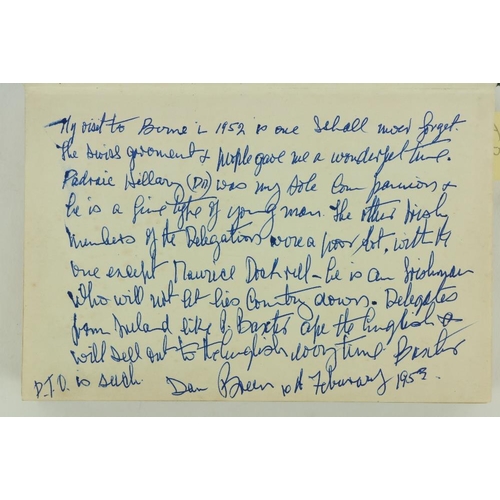 My visit to Berne in 1952 is one I shall never forget.
The Swiss goverment & people gave me a wonderful time.
Padraic Hillary (Dr) was my sole companion &
he is a fine type of young man. The other Irish
members of the Delegations were a poor lot, with the
one except Maurice Dockrell - he is an Irishman
who will not let his Country down. Delegates
from Ireland like P. Baxter ape the English &
will sell out to the English every time Baxter
P.T.O. is such. Dan Breen 10th Feburary 1953.